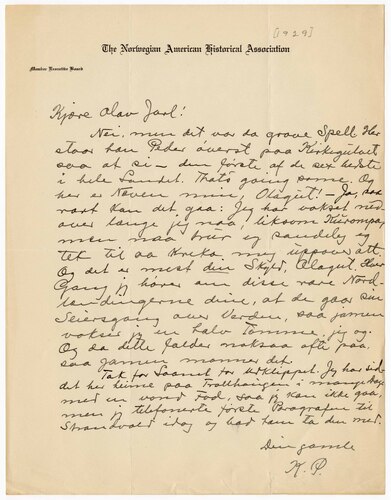 [1929]
The Norwegian American Historical Association
Member Executive Board
Kjære Olav Jarl!
Nei, men det var da grove Spell! Her
staar han Peder øverst paa Kirkegulvet
saa at si – den første af de sex bedste
i hele Landet. That's going some. Og
her er Neven min, Olagut! – Ja, saa
rart kan det gaa: Jeg har vokset ned
over længe jeg naa, liksom
men maa trur eg sandelig eg
tet til aa kreka meg uppover att.
Og det er mest din Skyld, Olagut. Hver
Gang jeg hører om disse rare Nord-
landingerne dine, at de gaar sin
Seiersgang over Verden, saa jamen
vokser jeg en halv Tomme, jeg og.
Og da dette falder noksaa ofte paa,
saa jamen monner det.
Tak for Saanst for Udklippet. Jeg har sid-
det her heime paa Trollhaugen i mange dage
med en vond Fod, saa jeg kan ikke gaa,
men jeg telefonerte første Paragrafen til
Strandvold idag og bad ham ta den med.
Din gamle
K. P.